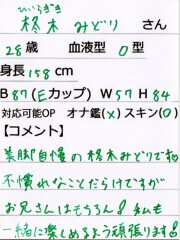 ひいらぎ
柊木 みどり さん
28歳 血液型 O型
身長158cm
B87(Eカップ) W57 H84
対応可能OP オナ鑑(×)スキン(○)
【コメント】
美脚自慢の柊木みどりです♡
不慣れなことだらけですが
お兄さんはもちろん!私も
一緒に楽しめるよう頑張ります!